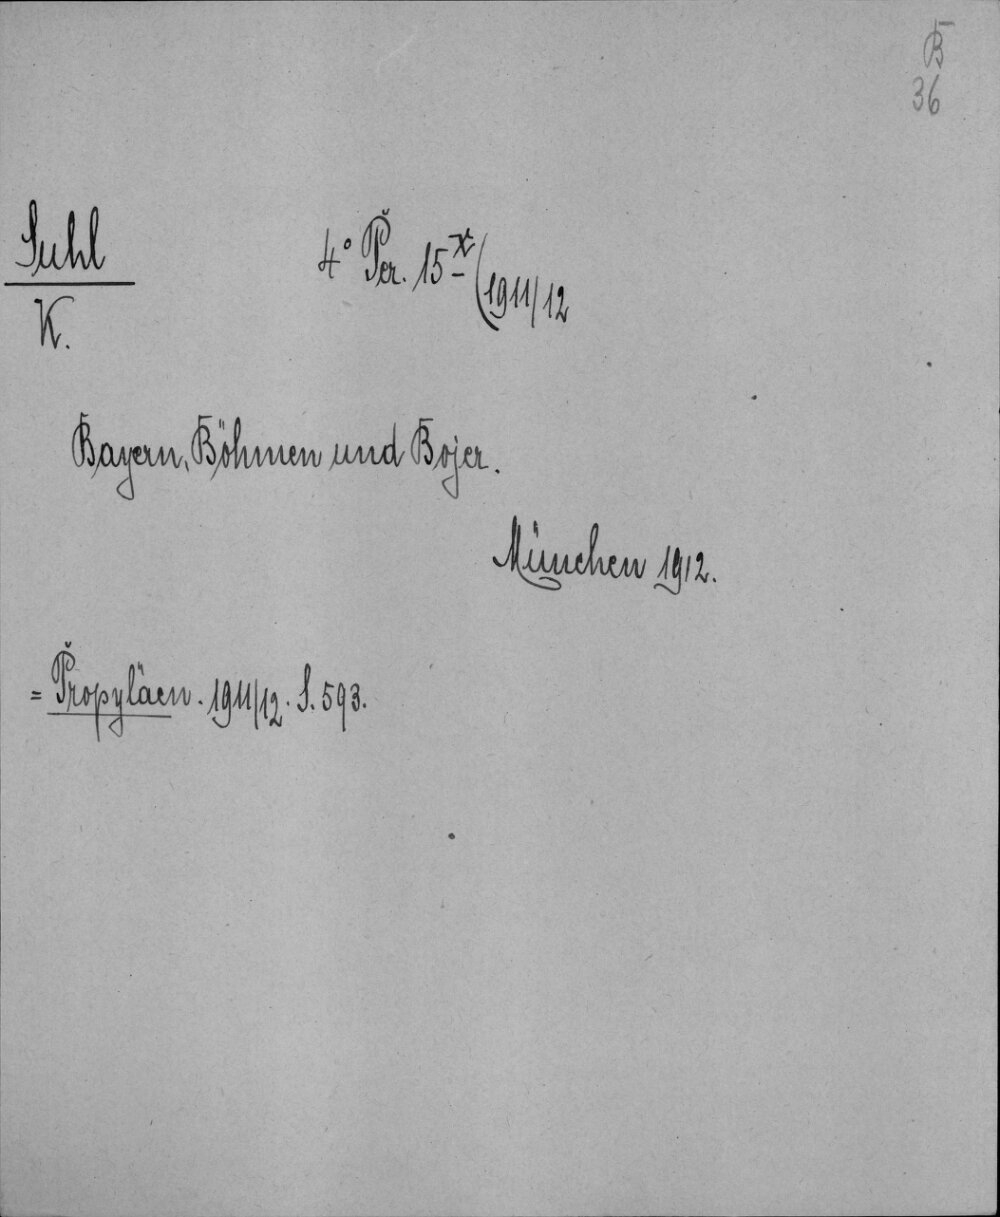 B
36
Suhl 4° Per. 15 x (1911/12
K.
Bayern, Böhmen und Bojer.
München 1912.
= Propyläen. 1911/12. S. 593.